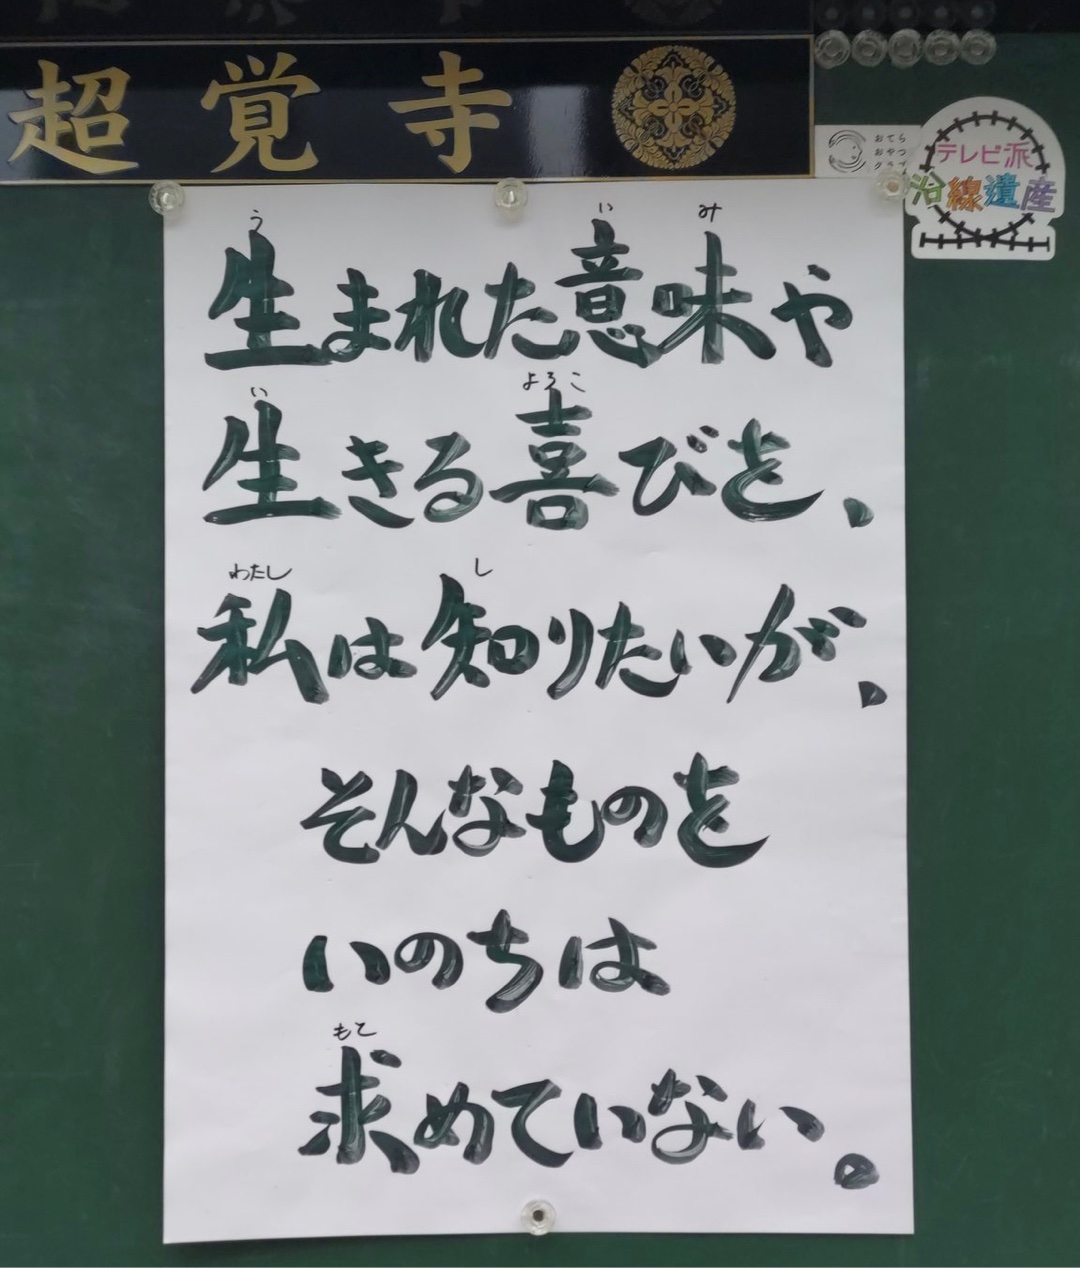 超覚寺
おてら
おやつ
クラブ
テレビ派
沿線遺産
う い み
生まれた意味や
い よろこ
生きる喜びを、
わたし し
私は知りたいが、
そんなものを
いのちは
もと
求めていない。